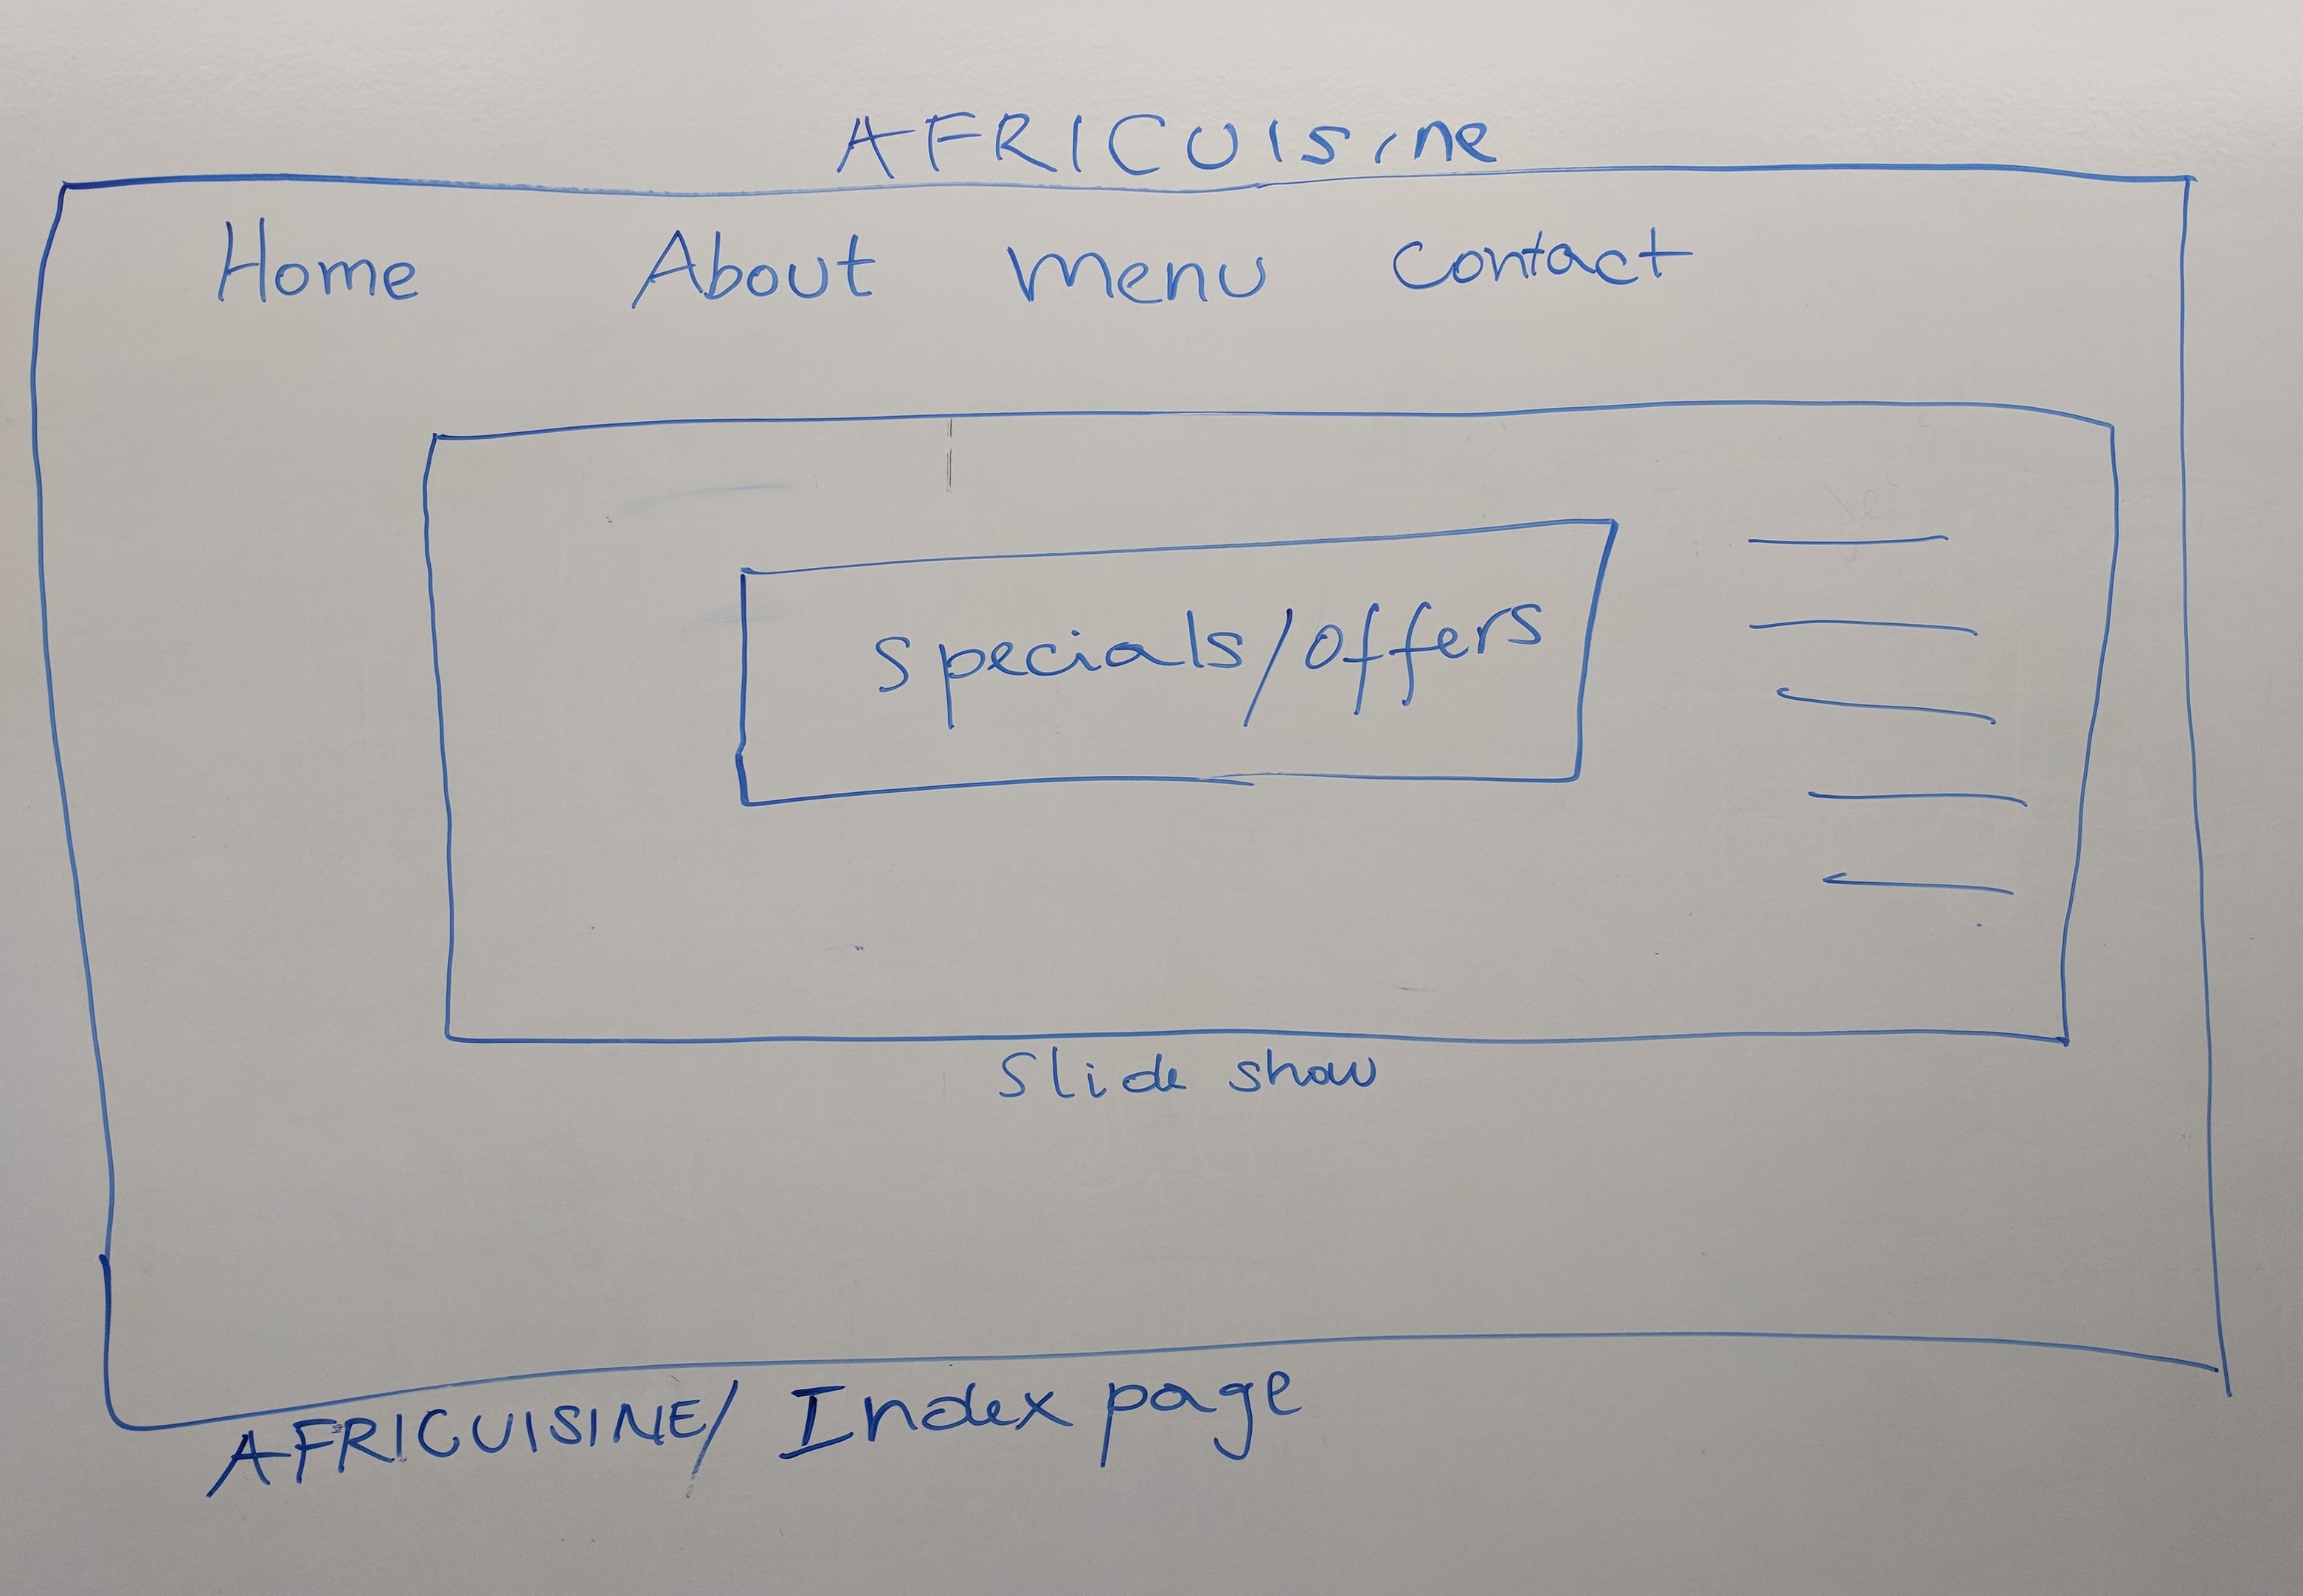 AFRICUisine
Home About Menu Contact
Specials/Offers
Slide show
AFRICUISINE/ Index page